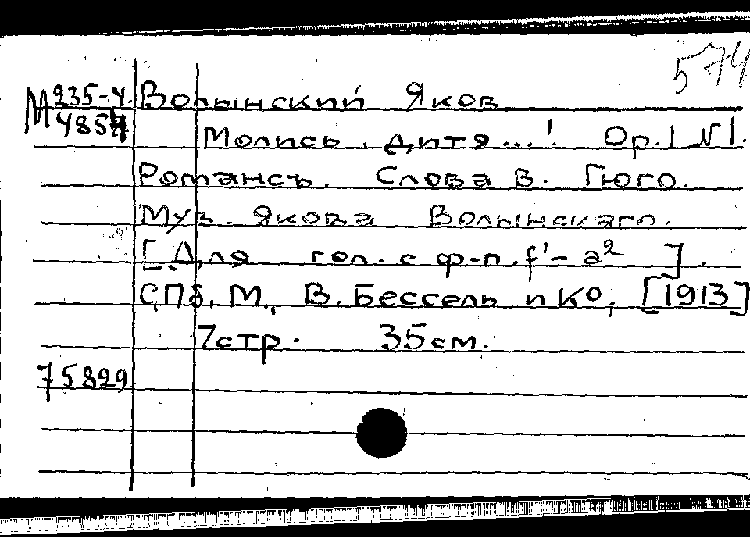 574
М 235-4 Волынский Яков
4857 Молись, дитя...! Op.1 №1.
Романсъ. Слова В. Гюго.
Муз. Якова Волынскаго.
[Для гол. с ф-п. f'- a²].
СПб, М., В. Бессель и Ко, [1913]
7 стр. 35 см.
75829